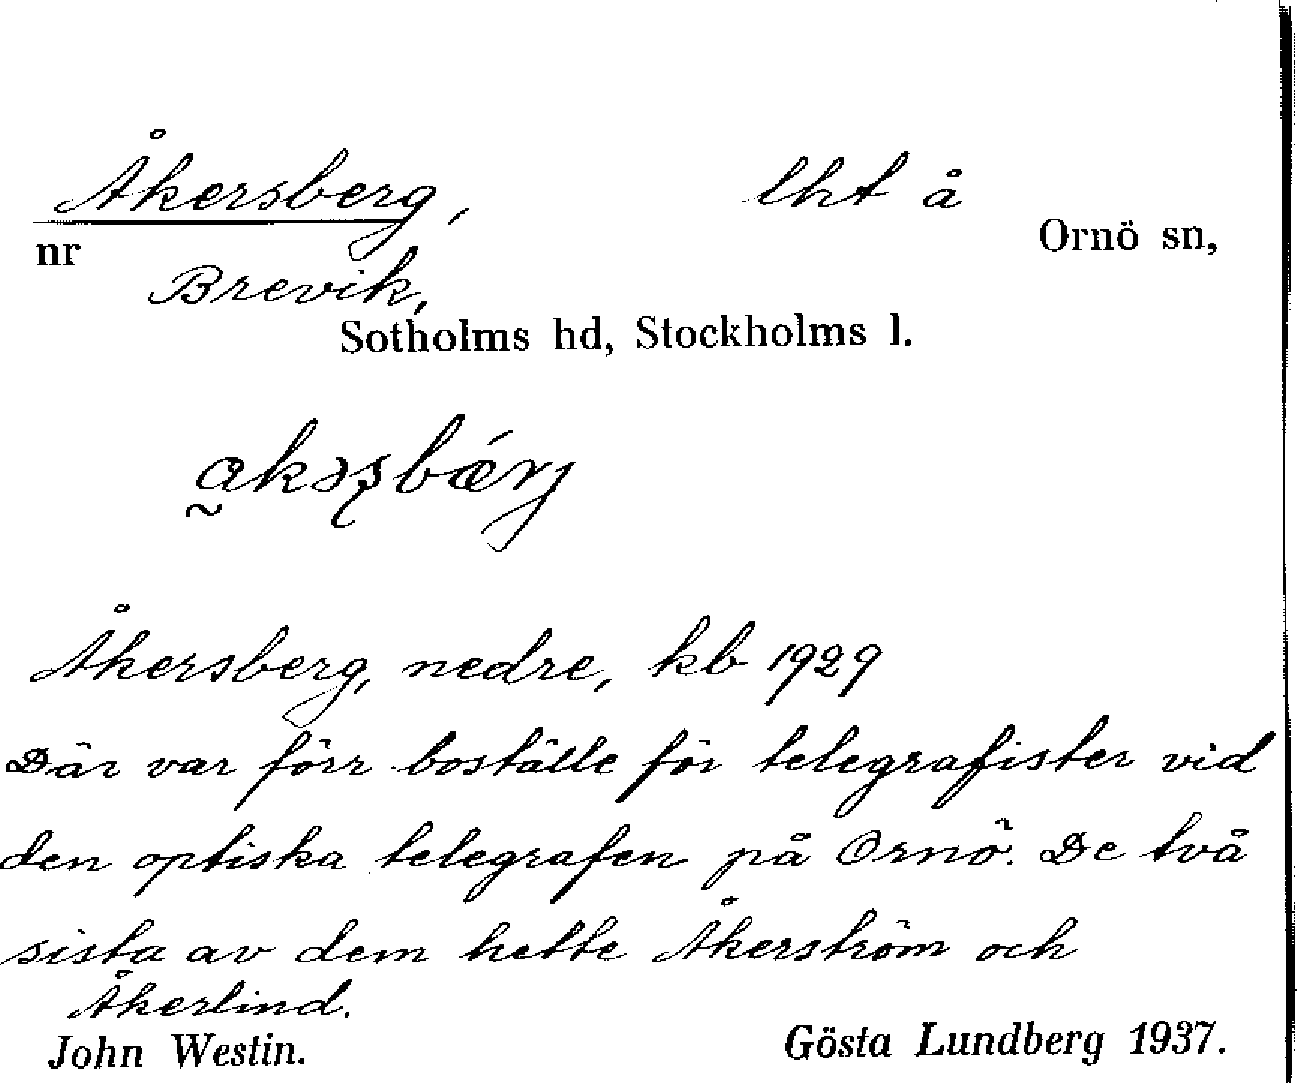 Åkersberg, lht å
nr Ornö sn,
Brevik,
Sotholms hd, Stockholms l.
Åkersberg, nedre, kb 1929
Där var förr boställe för telegrafister vid
den optiska telegrafen på Ornö. De två
sista av dem hette Åkerström och
Åkerlind.
John Westin. Gösta Lundberg 1937.